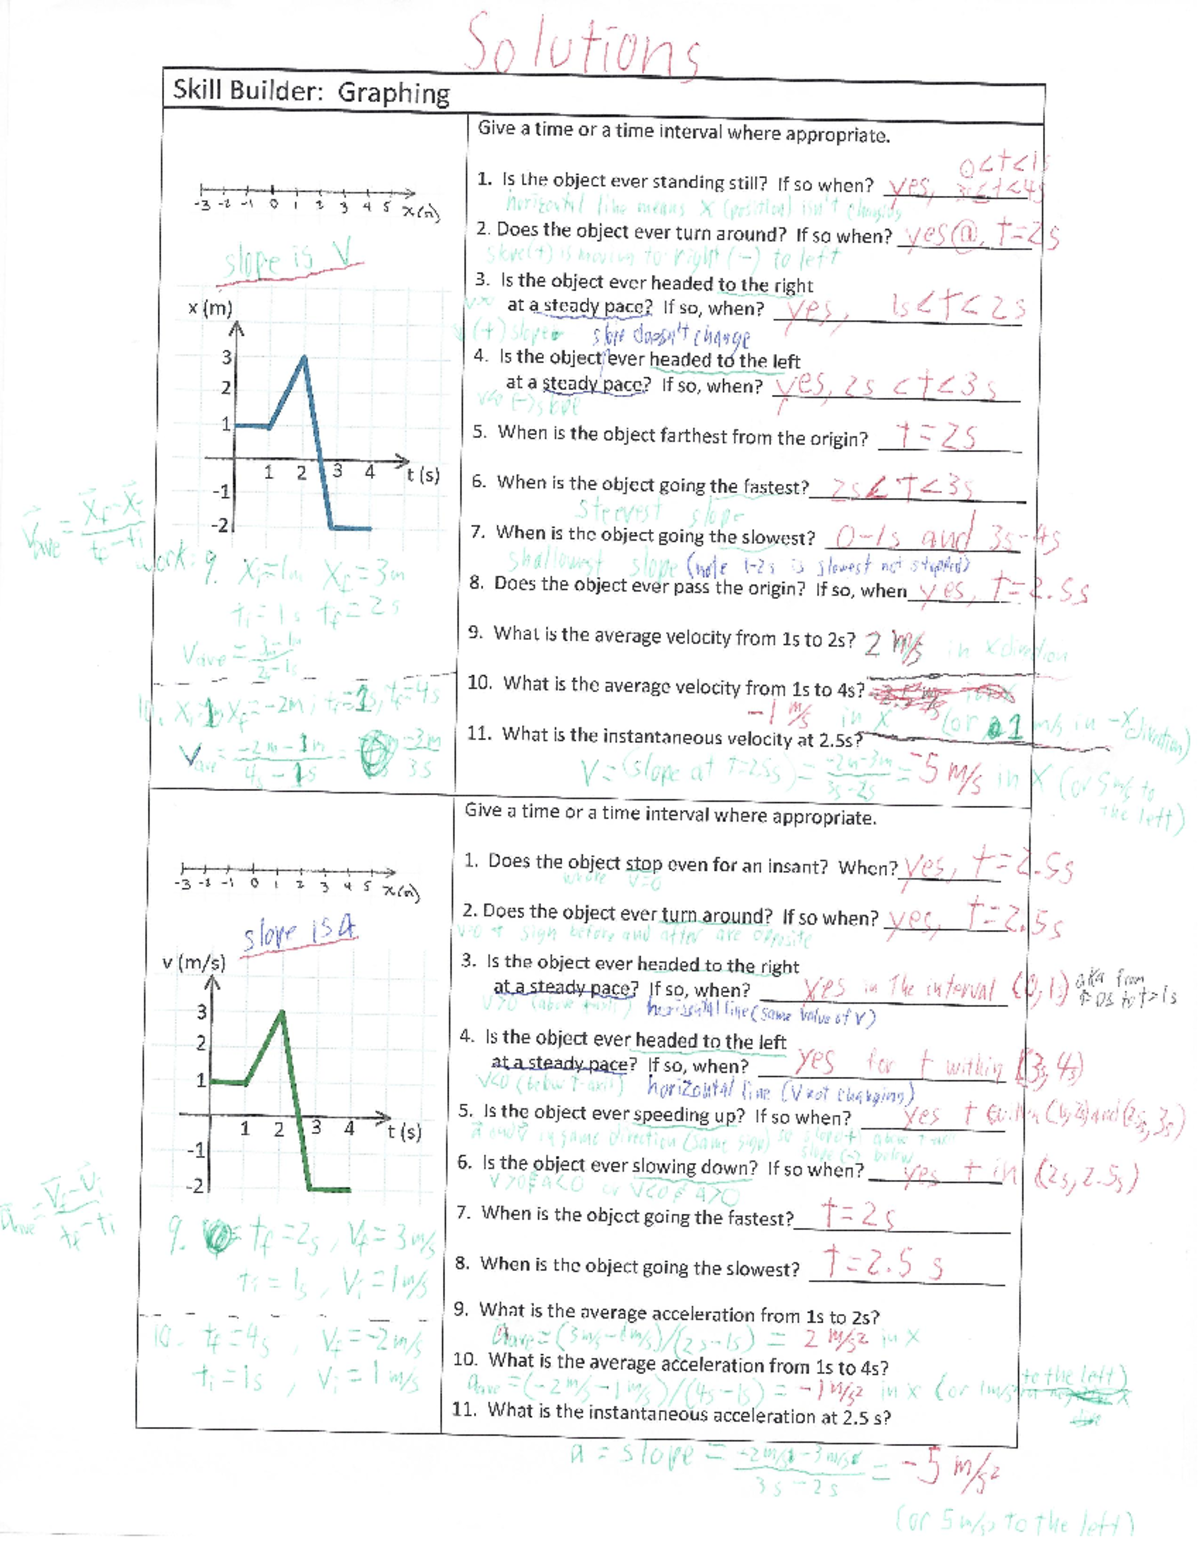 Solutions
Skill Builder: Graphing
-3 -2 -1 0 1 2 3 4 5 x(m)
slope is V
x (m)
3
2
1
1 2 3 4 t (s)
-1
-2
Vave = Xf-Xi / tf-ti
work: 9. Xi=1m Xf=3m
ti=1s tf=2s
Vave = 3m-1m / 2s-1s
10. Xi 1m Xf=-2m; ti=1s, tf=4s
Vave = -2m-1m / 4s-1s = -3m / 3s
Give a time or a time interval where appropriate.
0<t<1s
1. Is the object ever standing still? If so when? yes, 3s<t<4s
horizontal line means x (position) isn't changing
2. Does the object ever turn around? If so when? yes @ t=2s
slope(+) is moving to right (-) to left
3. Is the object ever headed to the right
at a steady pace? If so, when? yes, 1s<t<2s
(+) slope slope doesn't change
4. Is the object ever headed to the left
at a steady pace? If so, when? yes, 2s<t<3s
v<0 (-) slope
5. When is the object farthest from the origin? t=2s
6. When is the object going the fastest? 2s<t<3s
Steepest slope
7. When is the object going the slowest? 0-1s and 3s-4s
shallowest slope (note 1-2s is slowest not stopped)
8. Does the object ever pass the origin? If so, when yes, t=2.5s
9. What is the average velocity from 1s to 2s? 2 m/s in x direction
10. What is the average velocity from 1s to 4s?
-1 m/s in x (or 1 m/s in -x direction)
11. What is the instantaneous velocity at 2.5s?
V=(slope at t=2.5s) = -2m-3m / 3s-2s = -5 m/s in x (or 5 m/s to
the left)
-3 -2 -1 0 1 2 3 4 5 x(m)
slope is A
v (m/s)
3
2
1
1 2 3 4 t (s)
-1
-2
aave = Vf-Vi / tf-ti
9. tf=2s, Vf=3m/s
ti=1s, Vi=1m/s
10. tf=4s Vf=-2m/s
ti=1s, Vi=1m/s
Give a time or a time interval where appropriate.
1. Does the object stop even for an insant? When? yes, t=2.5s
where v=0
2. Does the object ever turn around? If so when? yes, t=2.5s
v=0 + sign before and after are opposite
3. Is the object ever headed to the right
at a steady pace? If so, when? yes in the interval (0,1s) aka from t=0s to t=1s
v>0 (above t-axis) horizontal line (same value of v)
4. Is the object ever headed to the left
at a steady pace? If so, when? yes for t within (3s,4s)
v<0 (below t-axis) horizontal line (v not changing)
5. Is the object ever speeding up? If so when? yes t within (1s,2s) and (2.5s,3s)
a and v in same direction (same sign) so slope(+) above t axis
slope (-) below
6. Is the object ever slowing down? If so when? yes t in (2s,2.5s)
v>0 & a<0 or v<0 & a>0
7. When is the object going the fastest? t=2s
8. When is the object going the slowest? t=2.5 s
9. What is the average acceleration from 1s to 2s?
aave=(3m/s-1m/s)/(2s-1s) = 2 m/s2 in x
10. What is the average acceleration from 1s to 4s?
aave=(-2m/s-1m/s)/(4s-1s) = -1m/s2 in x (or 1m/s2 to the left)
11. What is the instantaneous acceleration at 2.5 s?
a = slope = -2m/s-3m/s / 3s-2s = -5 m/s2
(or 5m/s2 to the left)